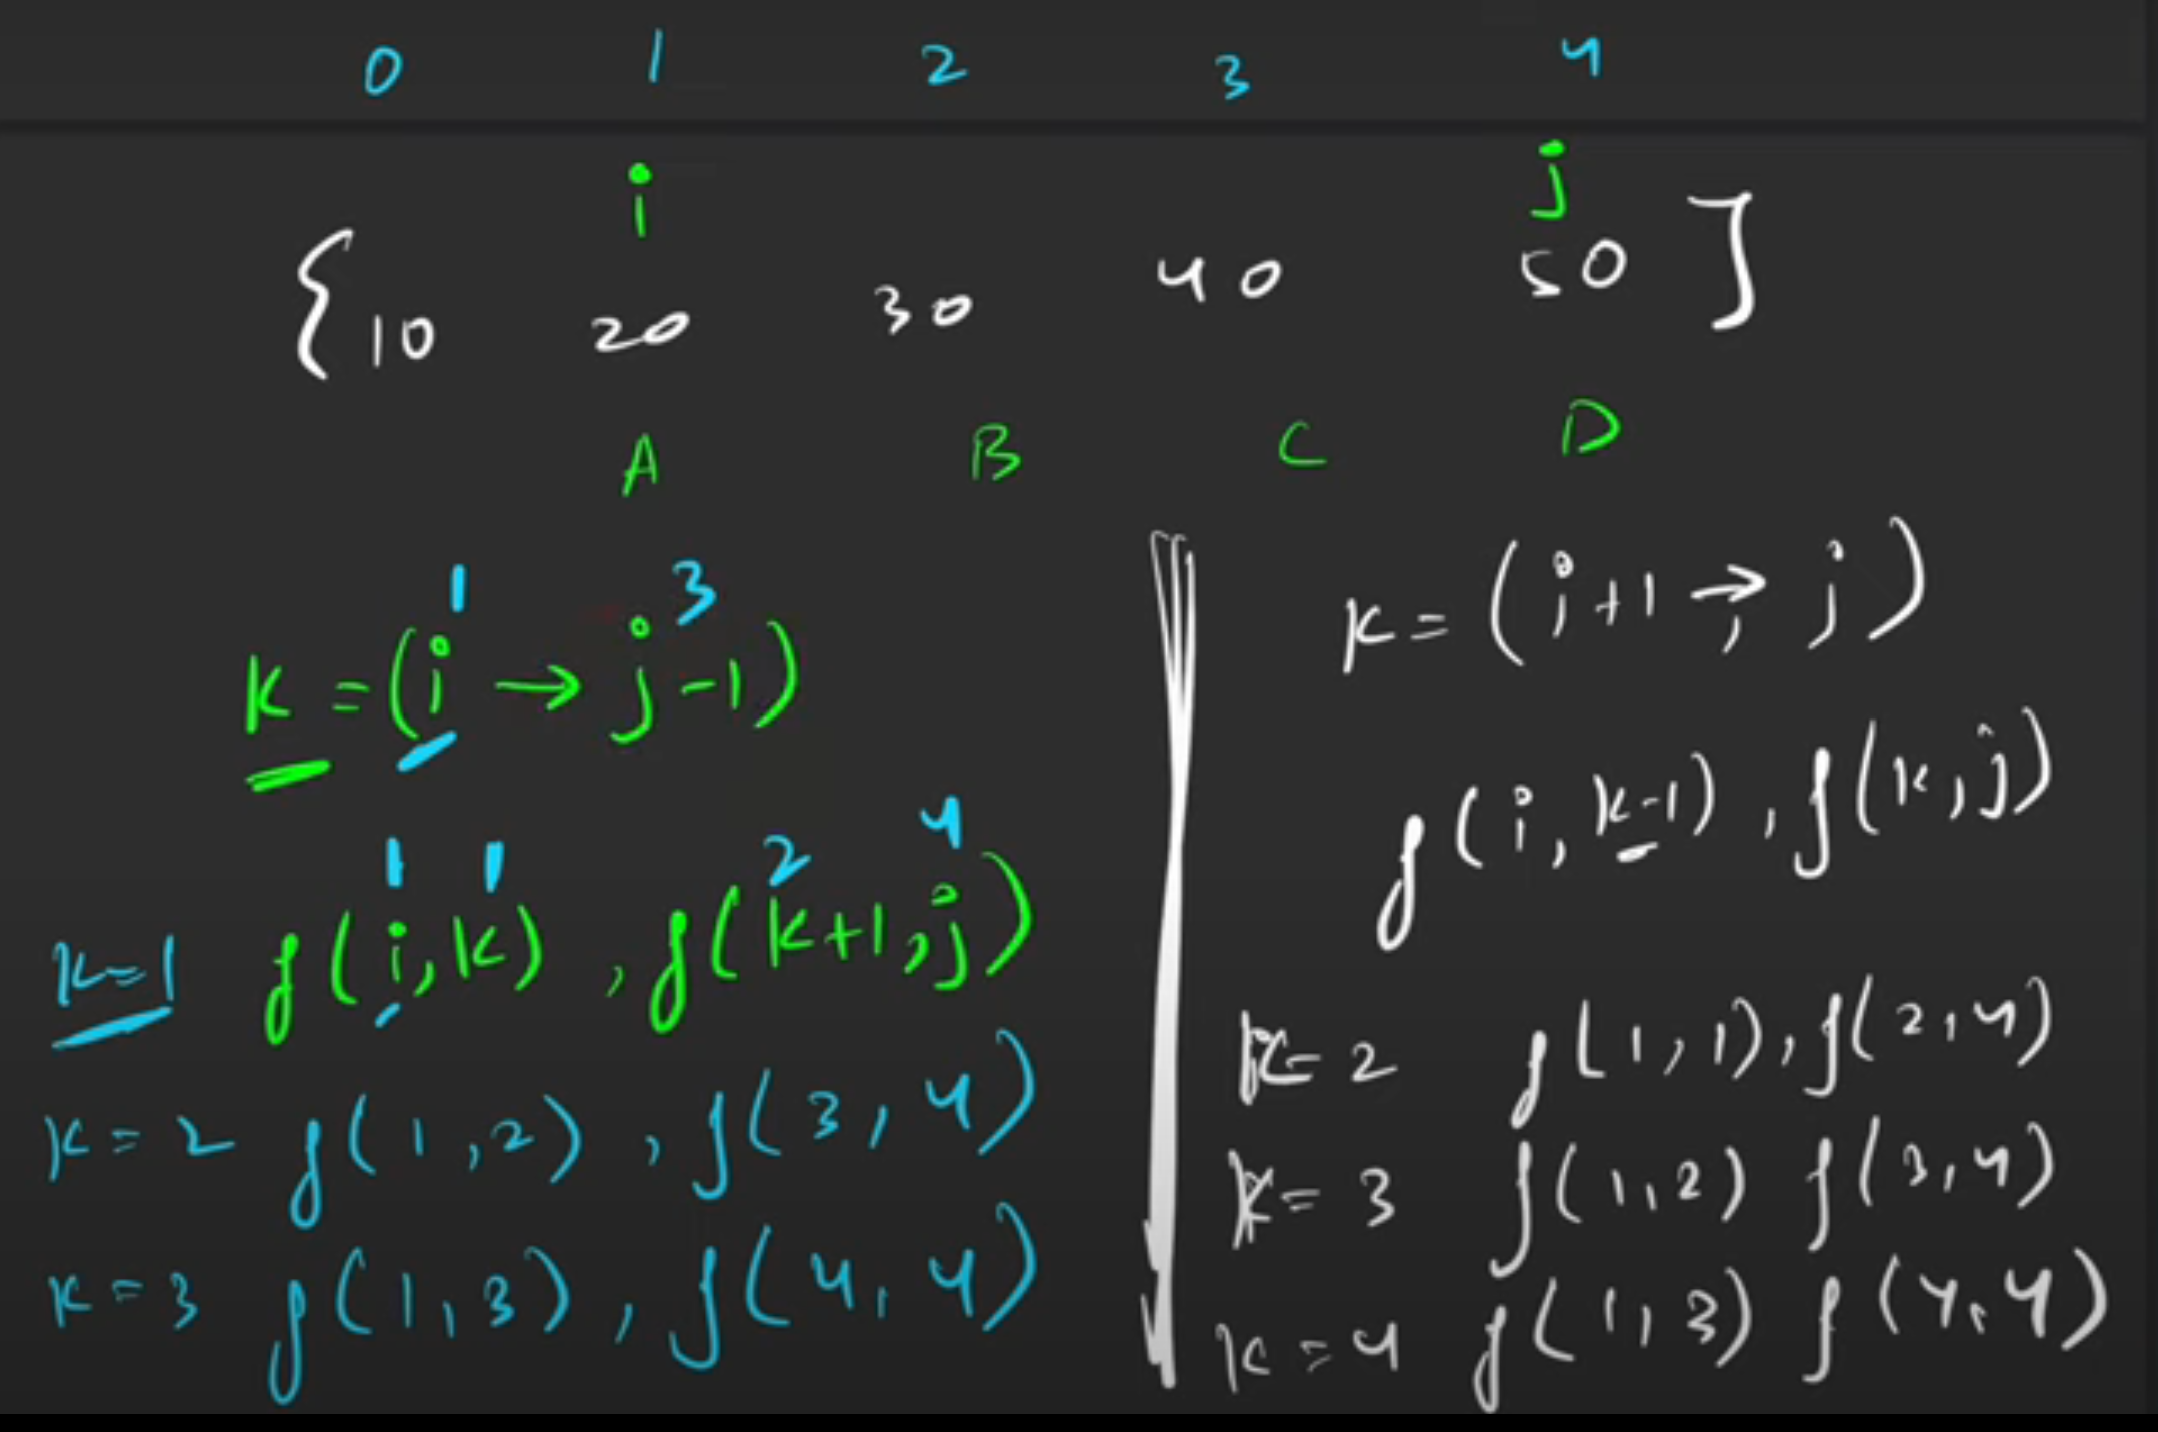 0 1 2 3 4
i j
{10 20 30 40 50]
A B C D
1 3
k = (i → j-1)
1 1 2 4
k=1 f(i,k) , f(k+1,j)
k=2 f(1,2) , f(3,4)
k=3 f(1,3) , f(4,4)
k = (i+1 → j)
f(i,k-1) , f(k,j)
k=2 f(1,1), f(2,4)
k=3 f(1,2) f(3,4)
k=4 f(1,3) f(4,4)